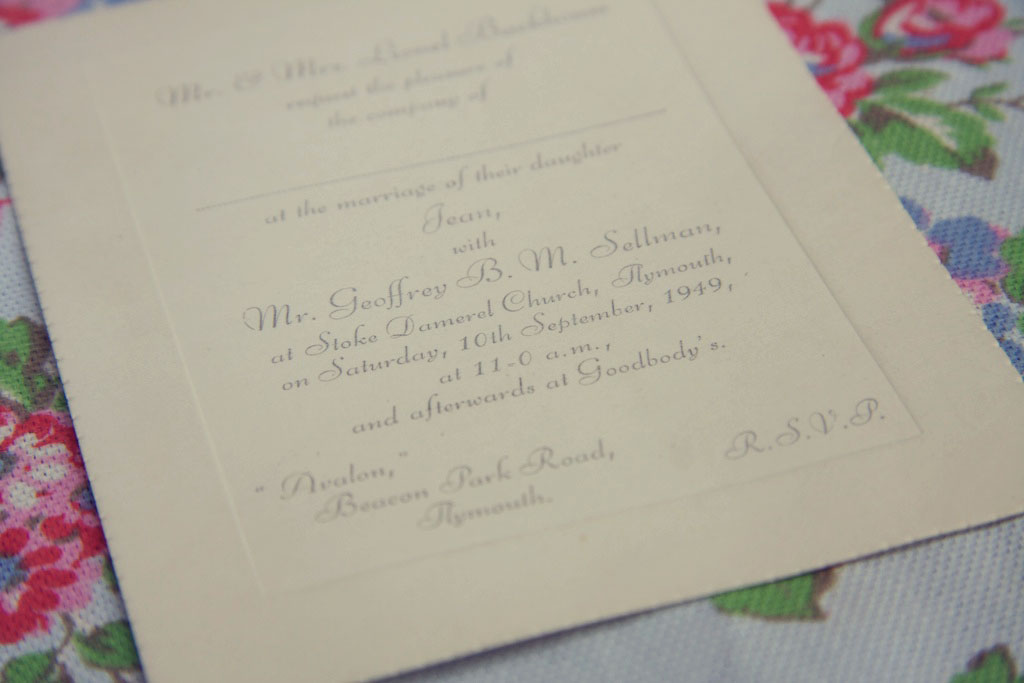 Mr. & Mrs. Lionel Backhouse
request the pleasure of
the company of
at the marriage of their daughter
Jean,
with
Mr. Geoffrey B. M. Sellman,
at Stoke Damerel Church, Plymouth,
on Saturday, 10th September, 1949,
at 11-0 a.m.,
and afterwards at Goodbody's.
"Avalon,"
Beacon Park Road,
Plymouth.
R.S.V.P.